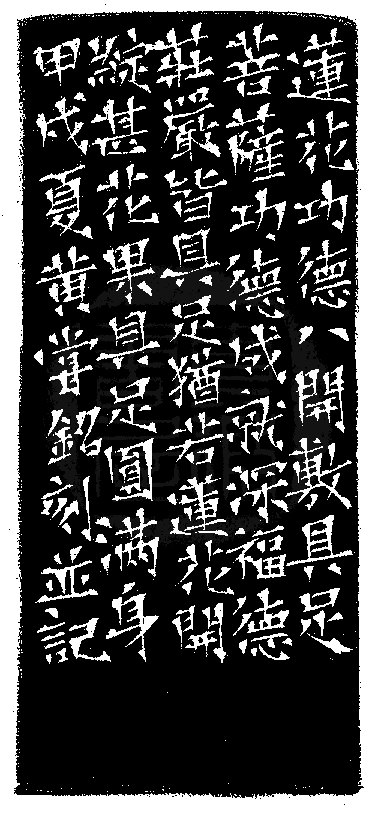 蓮花功德八開敷具足
菩薩功德成就深福德
莊嚴皆具足猶若蓮花開
綻甚花果具足圓滿身
甲戌夏黃嘗銘刻並記